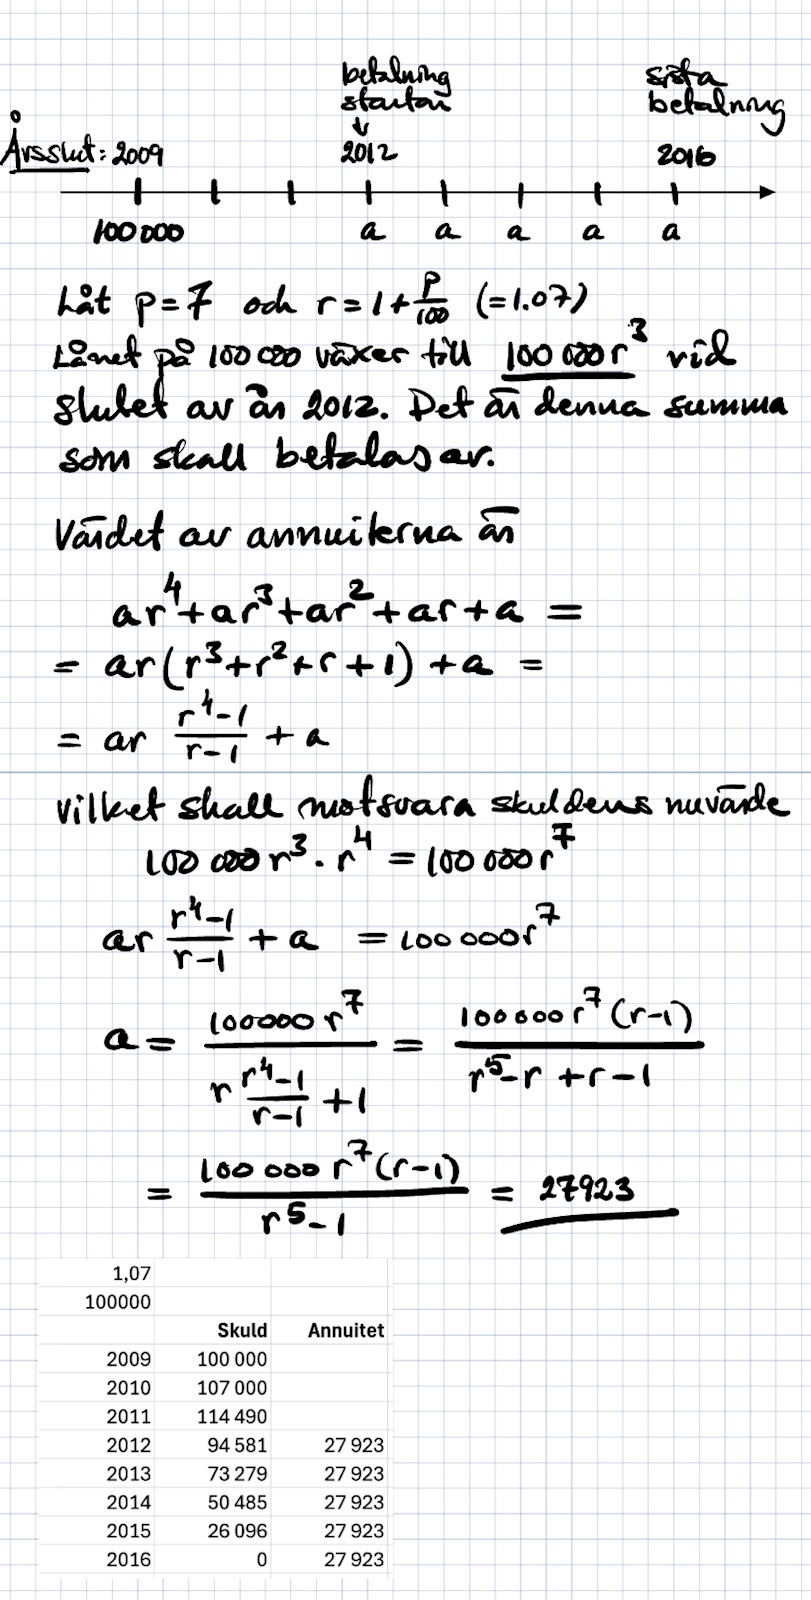 betalning
startar
↓
sista
betalning
Årsslut: 2009
2012
2016
100 000 a a a a a
Låt p=7 och r=1+p/100 (=1.07)
Lånet på 100 000 växer till 100 000r³ vid
slutet av år 2012. Det är denna summa
som skall betalas av.
Värdet av annuiterna är
ar⁴+ar³+ar²+ar+a =
= ar(r³+r²+r+1)+a =
= ar (r⁴-1)/(r-1) + a
vilket skall motsvara skuldens nuvärde
100 000 r³ · r⁴ = 100 000 r⁷
ar (r⁴-1)/(r-1) + a = 100 000r⁷
a = 100000 r⁷/(r (r⁴-1)/(r-1) +1) = 100 000 r⁷(r-1)/(r⁵-r+r-1)
= 100 000 r⁷(r-1)/(r⁵-1) = 27923
1,07
100000
Skuld Annuitet
2009 100 000
2010 107 000
2011 114 490
2012 94 581 27 923
2013 73 279 27 923
2014 50 485 27 923
2015 26 096 27 923
2016 0 27 923